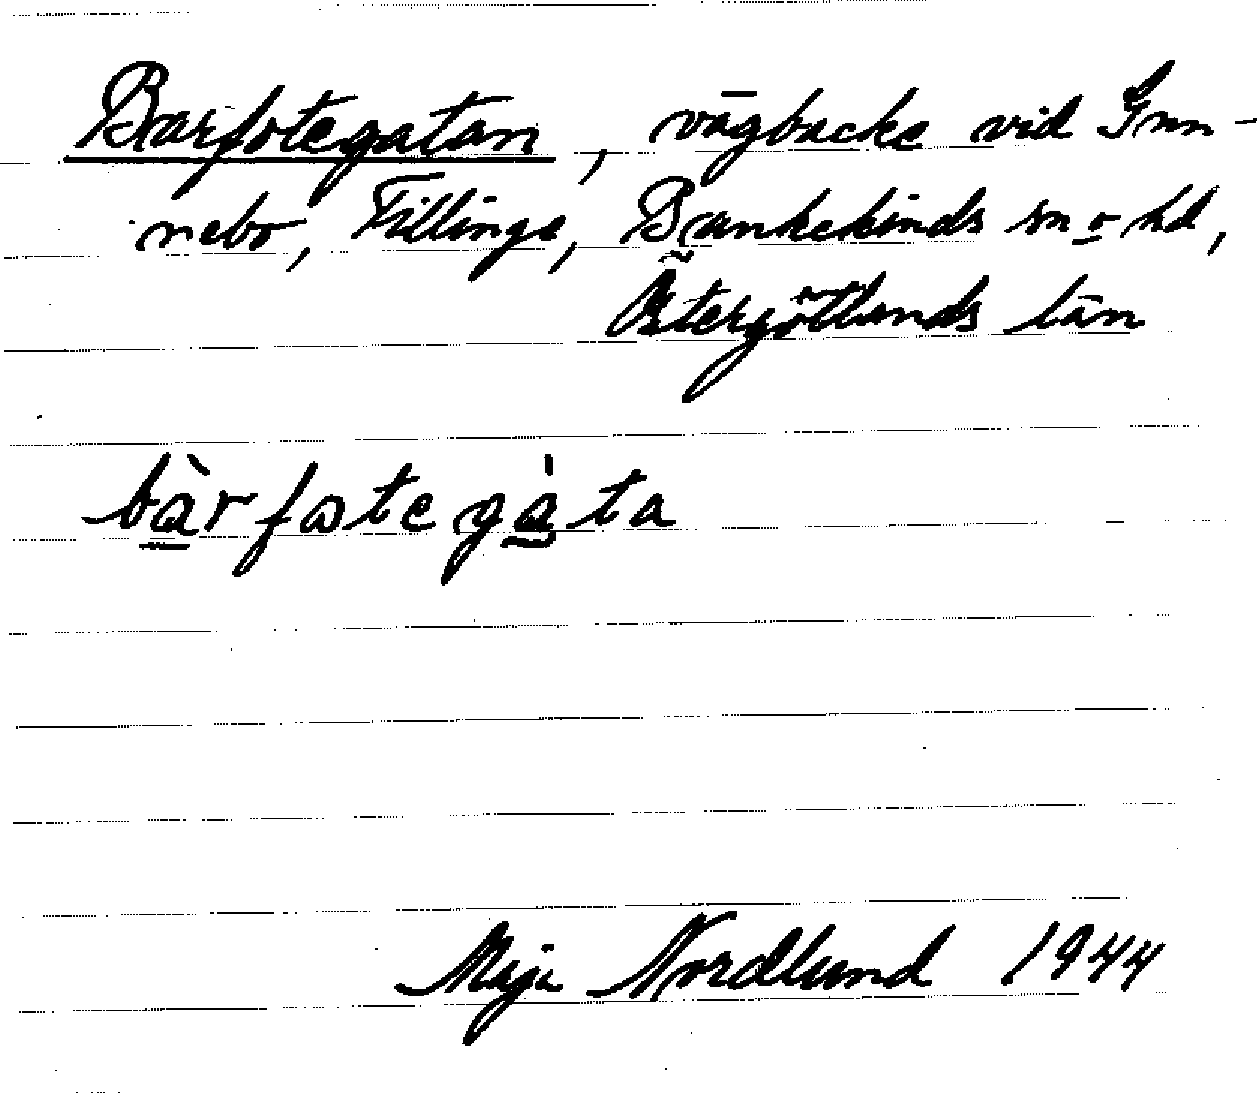 Barfotegatan, vägbacke vid Gun-
nebo, Fillinge, Bankekinds sn o hd,
Östergötlands län
bàrfωtegàta
Maja Nordlund 1944